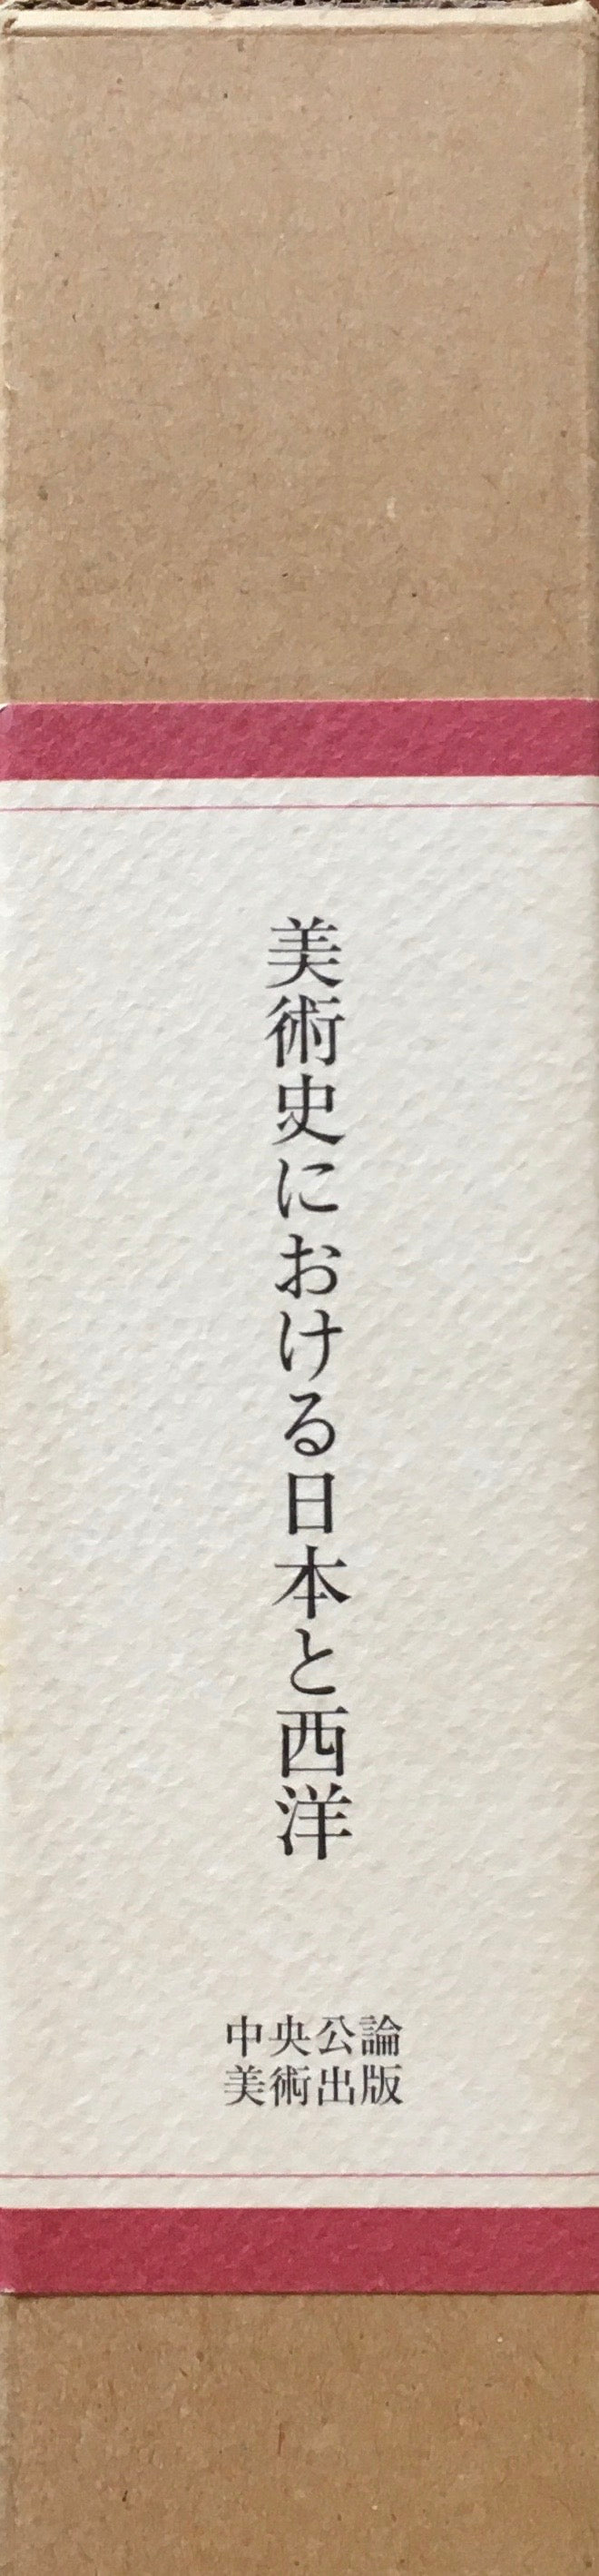 美術史における日本と西洋
中央公論
美術出版